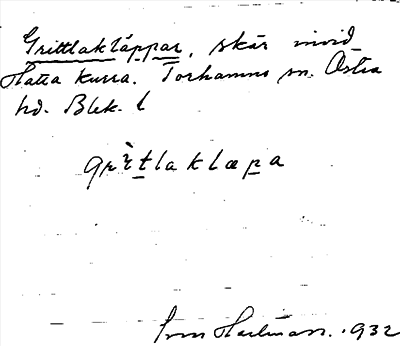 Grittlakläppar, skär invid
Hatta kurra. Torhamns sn. Östra
hd. Blek. l
grìtlaklæpa
Sven Hartman. 1932